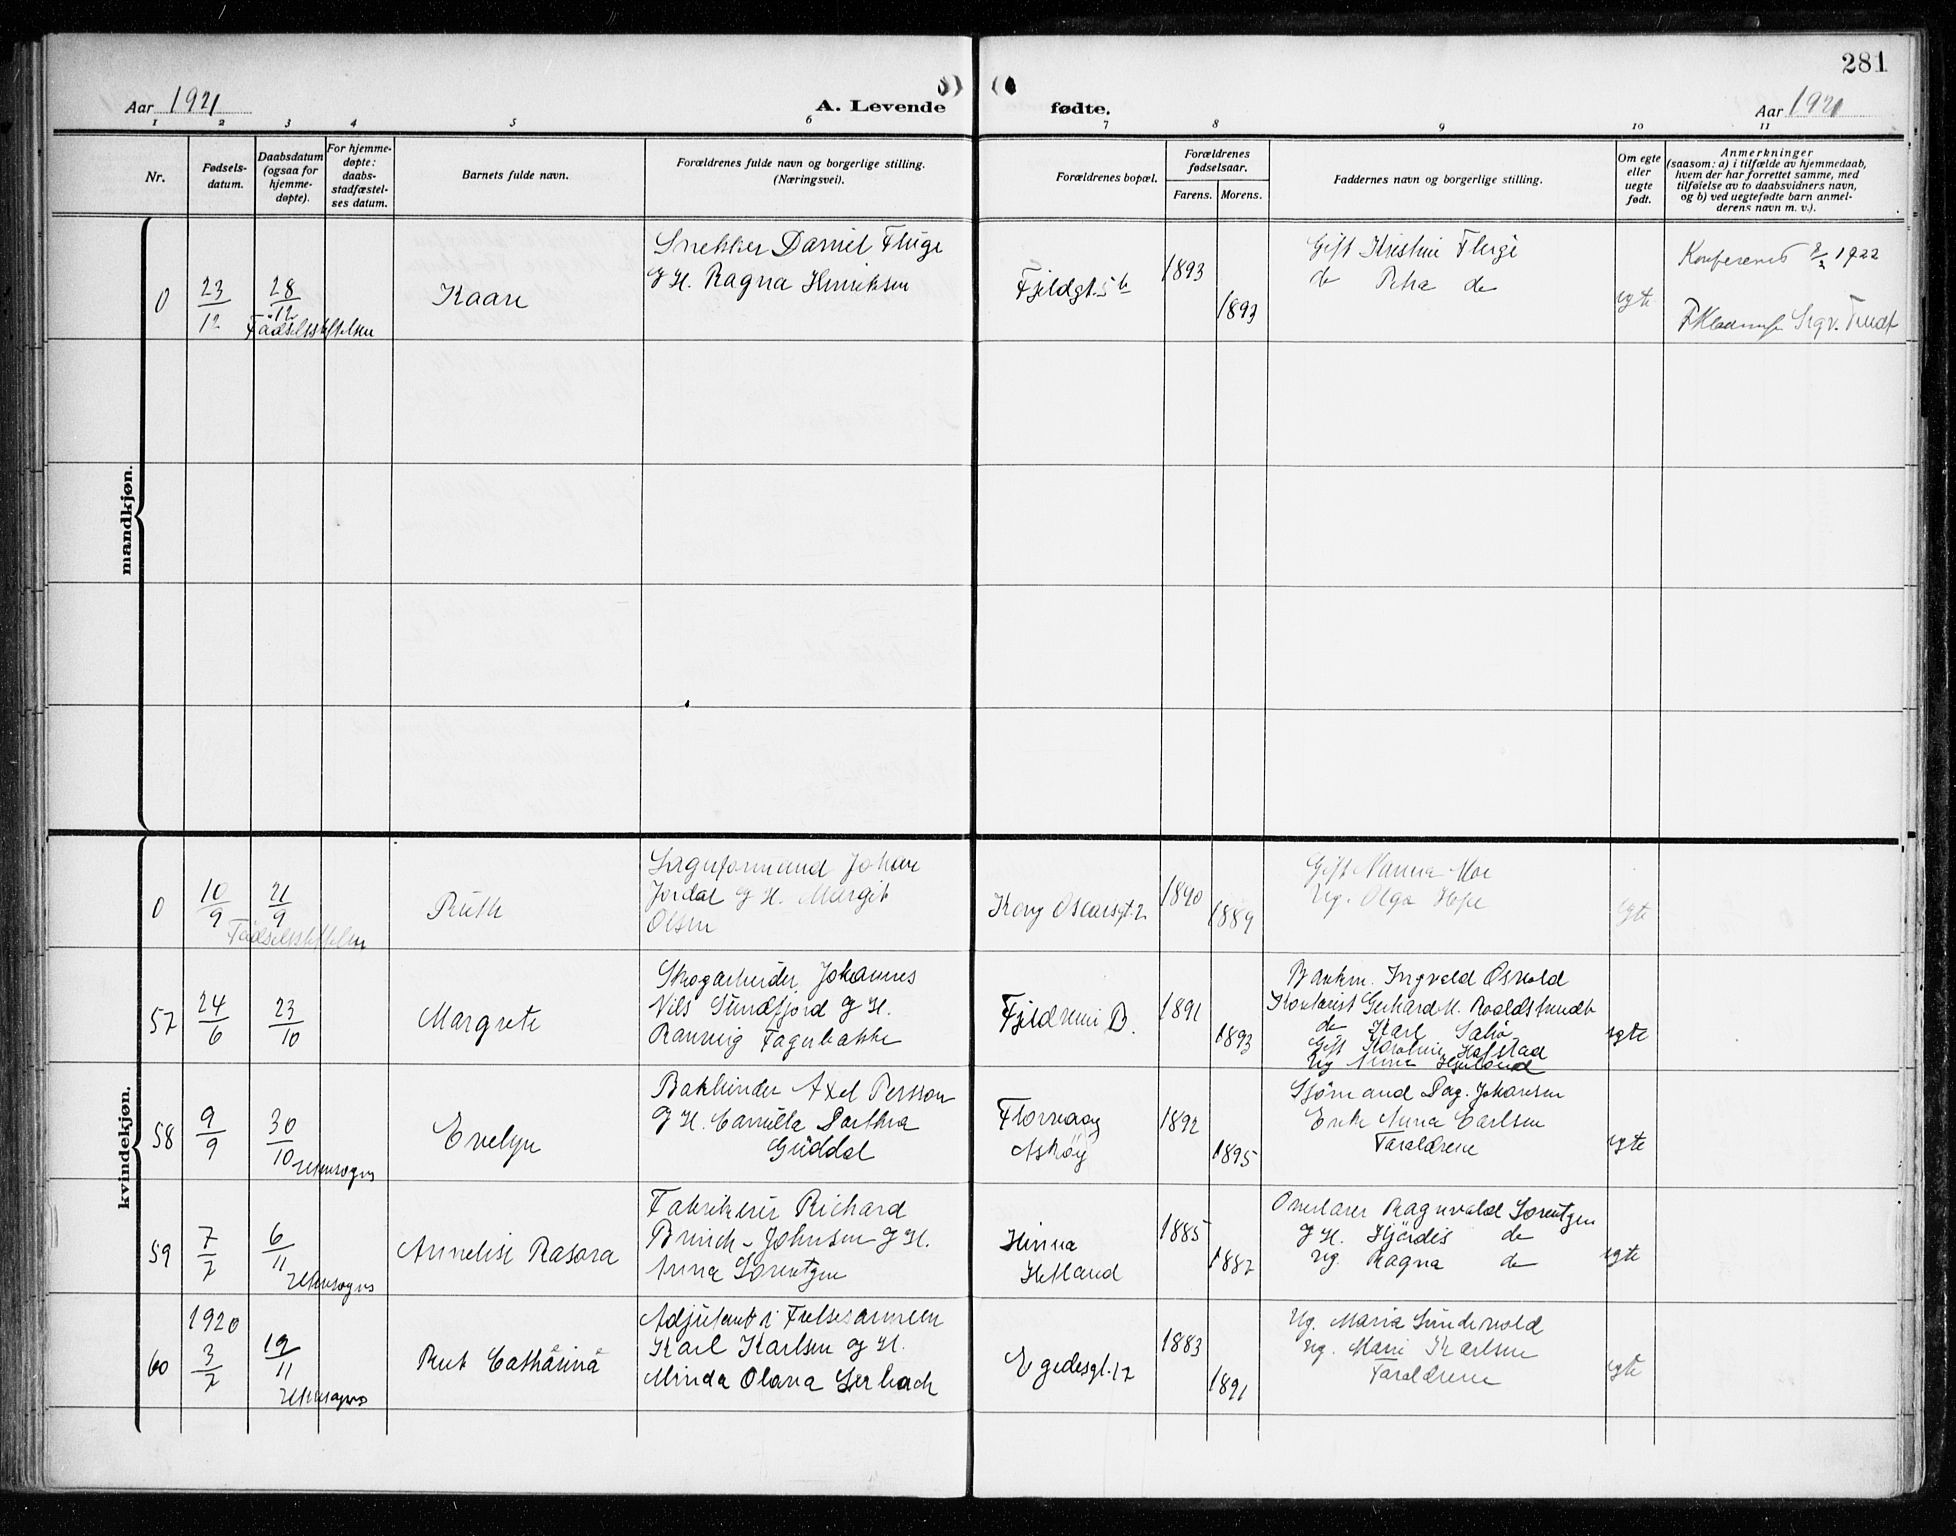 281
Aar 1921
A. Levende
fødte.
Aar 1921
1 2 3 4 5 6 7 8 9 10 11
Nr.
Fødsels-
datum.
Daabsdatum
(ogsaa for
hjemme-
døpte).
For hjemme-
døpte:
daabs-
stadfæstel-
ses datum.
Barnets fulde navn.
Forældrenes fulde navn og borgerlige stilling.
(Næringsvei).
Forældrenes bopæl.
Forældrenes
fødselsaar.
Farens. Morens.
Faddernes navn og borgerlige stilling.
Om egte
eller
uegte
født.
Anmerkninger
(saasom: a) i tilfælde av hjemmedaab,
hvem der har forrettet samme, med
tilføielse av to daabsvidners navn,
og b) ved uegtefødte barn anmel-
derens navn m. v.).
mandkjøn.
0
23/12
28/12
Fødselsstiftelsen
Kaare
Snekker Daniel Fluge
g H. Ragna Henriksen
Fjeldgt. 5b
1893
1893
Gift Kristine Fluge
do Petra do
egte
Konfereret 8/2 1922
Sigv. Tindt
kvindekjøn.
0
10/9
21/9
Fødselsstiftelsen
Ruth
Johan
Jordal g H. Margit
Olsen
Kong Oscarsgt. 2
1890
1889
Gift Nanna Moe
Ug. Olga Hope
egte
57
24/6
23/10
Margrete
Skogarbeider Johannes
Nils Sundfjord g H.
Rannveig Fagerbakke
Fjeldveien B.
1891
1893
Bankm. Ingvald Osvold
Kontorist Gerhard M. Roaldstrundt
do Karl Salø
Gift Karoline Hofstad
Ug Anna Hjelland
egte
58
9/9
30/10
Utensogns
Evelyn
Bokbinder Axel Persson
g H. Camilla Parthea
Guddal
Florvaag
Askøy
1892
1895
Sjømand Dag. Johansen
Enke Anna Carlsen
Forældrene
egte
59
7/7
6/11
Utensogns
Annelise Rasara
Fabrikeier Richard
Brinch-Johnsen g H.
Anna Lorentzen
Hinna
Hetland
1885
1887
Overlærer Ragnvald Lorentzen
g H. Hjördis do
ug. Ragna do
egte
60
1920
3/7
12/11
Utensogns
Rut Catharina
Adjutant i Frelsesarmeen
Karl Karlsen og H.
Minda Olava Lerbach
Egedesgt. 17
1883
1891
Ug. Maria Sundevold
ug. Marie Karlsen
Forældrene
egte